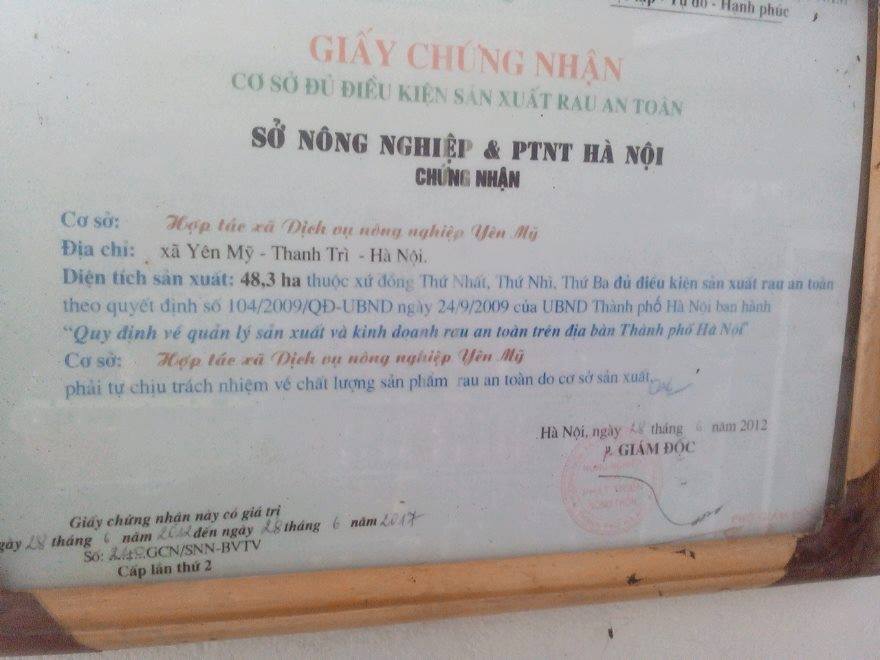 Tự do - Hạnh phúc
GIẤY CHỨNG NHẬN
CƠ SỞ ĐỦ ĐIỀU KIỆN SẢN XUẤT RAU AN TOÀN
SỞ NÔNG NGHIỆP & PTNT HÀ NỘI
CHỨNG NHẬN
Cơ sở: Hợp tác xã Dịch vụ nông nghiệp Yên Mỹ
Địa chỉ: xã Yên Mỹ - Thanh Trì - Hà Nội.
Diện tích sản xuất: 48,3 ha thuộc xứ đồng Thứ Nhất, Thứ Nhì, Thứ Ba đủ điều kiện sản xuất rau an toàn
theo quyết định số 104/2009/QĐ-UBND ngày 24/9/2009 của UBND Thành phố Hà Nội ban hành
“Quy định về quản lý sản xuất và kinh doanh rau an toàn trên địa bàn Thành phố Hà Nội”
Cơ sở: Hợp tác xã Dịch vụ nông nghiệp Yên Mỹ
phải tự chịu trách nhiệm về chất lượng sản phẩm rau an toàn do cơ sở sản xuất.
Hà Nội, ngày 28 tháng 6 năm 2012
GIÁM ĐỐC
Giấy chứng nhận này có giá trị
ngày 28 tháng 6 năm 2012 đến ngày 28 tháng 6 năm 2017
Số: GCN/SNN-BVTV
Cấp lần thứ 2